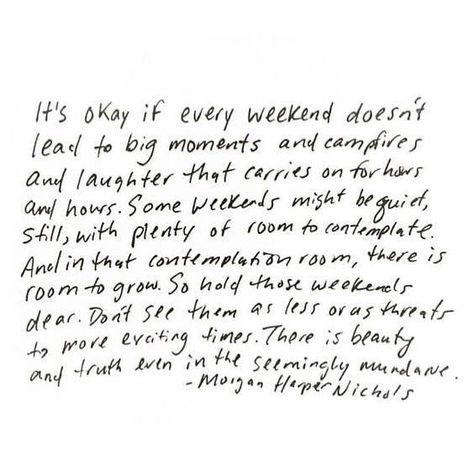 It's okay if every weekend doesn't
lead to big moments and campfires
and laughter that carries on for hours
and hours. Some weekends might be quiet,
still, with plenty of room to contemplate.
And in that contemplation room, there is
room to grow. So hold those weekends
dear. Don't see them as less or as threats
to more exciting times. There is beauty
and truth even in the seemingly mundane.
- Morgan Harper Nichols